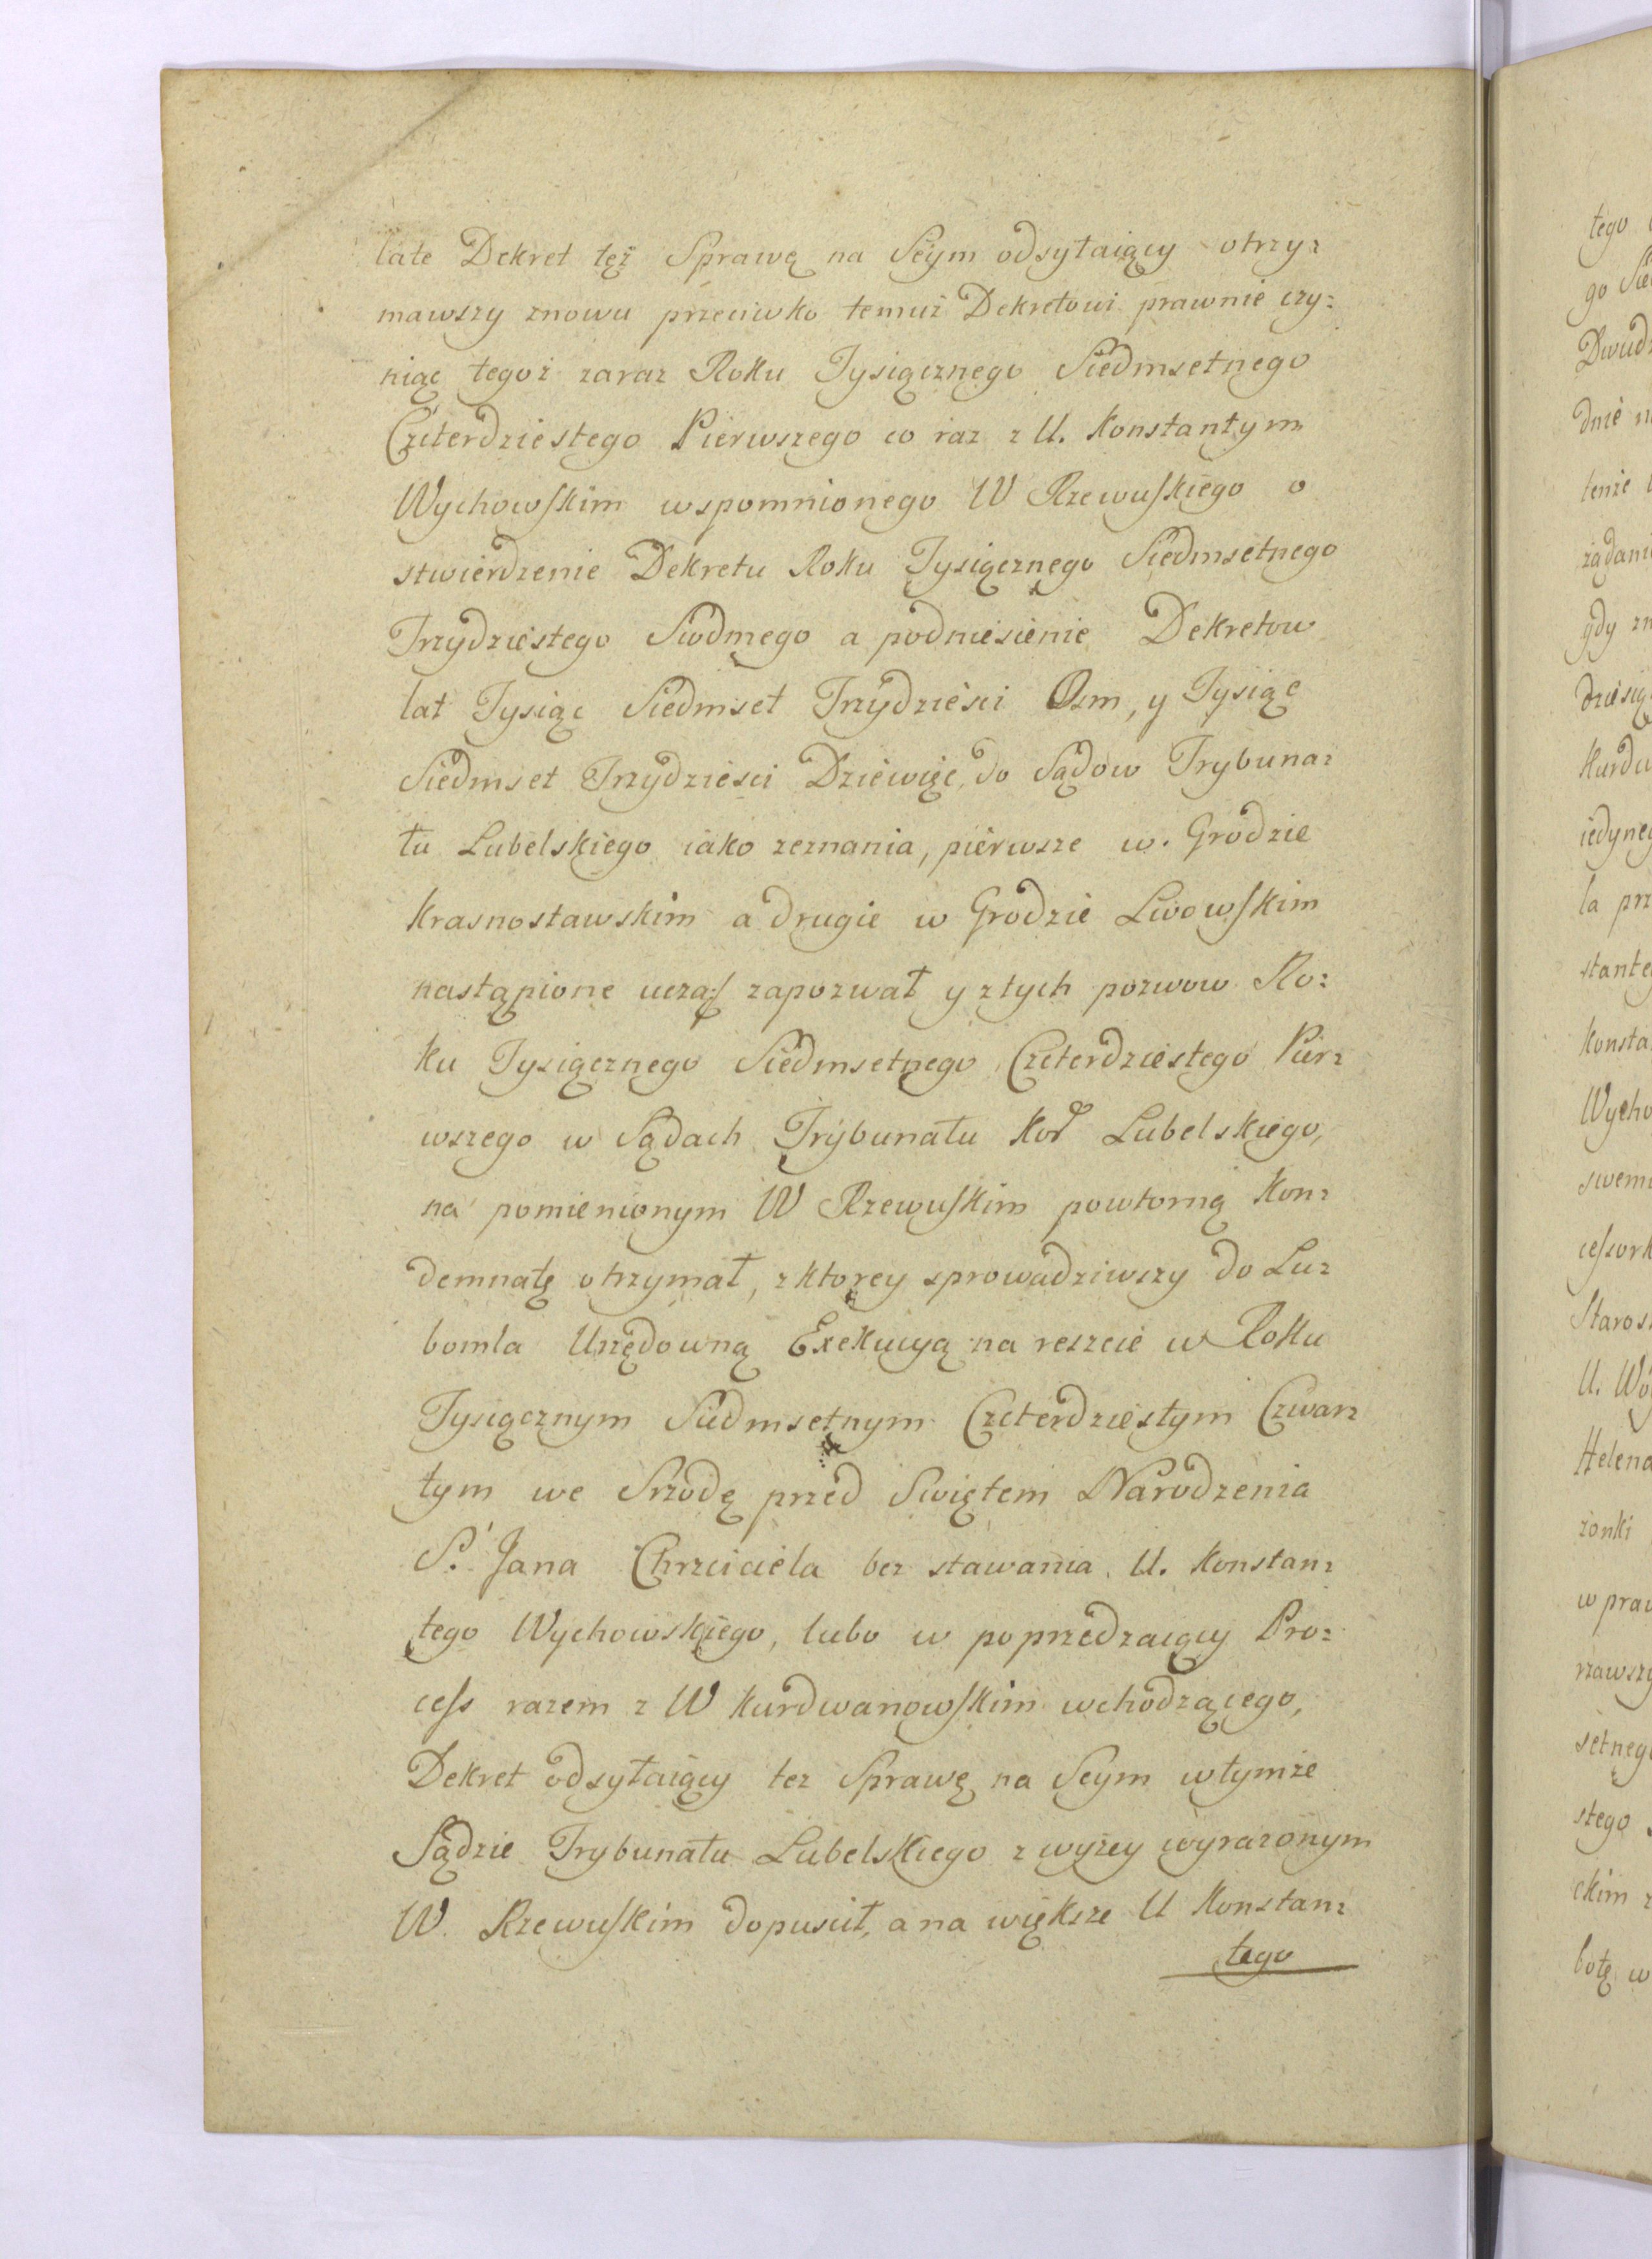 late Dekret tęż Sprawę na Seym odsyłaiący otrzy:
mawszy znowu przeciwko temuż Dekretowi prawnie czy:
niąc tegoż zaraz Roku Tysiącznego Siedmsetnego
Czterdziestego Pierwszego co raz z U. Konstantym
Wychowskim wspomnionego W Rzewuskiego o
stwierdzenie Dekretu Roku Tysiącznego Siedmsetnego
Trzydziestego Siodmego a podniesienie Dekretow
lat Tysiąc Siedmset Trzydziesci Osm, y Tysiąc
Siedmset Trzydziesci Dziewięć, do Sądow Trybuna:
łu Lubelskiego iako zeznania, pierwsze w. Grodzie
Krasnostawskim a drugie w Grodzie Lwowskim
nastąpione uczą: zapozwał y z tych pozwow Ro:
ku Tysiącznego Siedmsetnego Czterdziestego Pier:
wszego w Sądach Trybunału Koł Lubelskiego,
na pomienionym W Rzewuskim powtorną Kon:
demnatę otrzymał, z ktorey sprowadziwszy do Lu:
bomla Urzędowną Exekucyą na reszcie w Roku
Tysiącznym Siedmsetnym Czterdziestym Czwar:
tym we Srzodę przed Swiętem Narodzenia
S. Jana Chrzciciela bez stawania U. Konstan:
tego Wychowskiego, lubo w poprzedzaiący Pro:
cess razem z W Kurdwanowskim wchodzącego,
Dekret odsyłaiący tez Sprawę na Seym w tymze
Sądzie Trybunału Lubelskiego z wyzey wyrazonym
W. Rzewuskim dopuscił, a na większe U Konstan:
tego